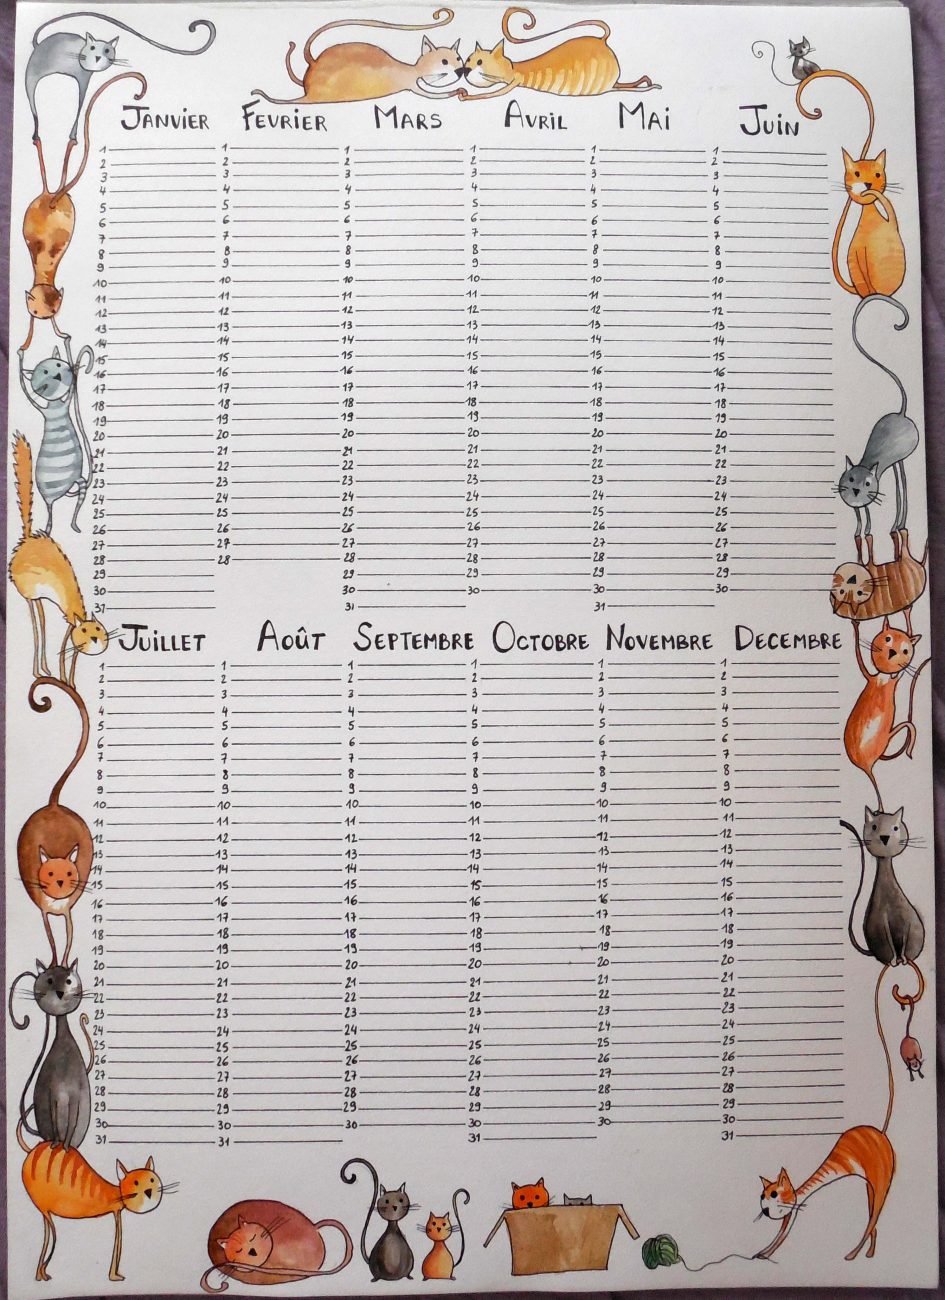 JANVIER FEVRIER MARS AVRIL MAI JUIN
1 1 1 1 1 1
2 2 2 2 2 2
3 3 3 3 3 3
4 4 4 4 4 4
5 5 5 5 5 5
6 6 6 6 6 6
7 7 7 7 7 7
8 8 8 8 8 8
9 9 9 9 9 9
10 10 10 10 10 10
11 11 11 11 11 11
12 12 12 12 12 12
13 13 13 13 13 13
14 14 14 14 14 14
15 15 15 15 15 15
16 16 16 16 16 16
17 17 17 17 17 17
18 18 18 18 18 18
19 19 19 19 19 19
20 20 20 20 20 20
21 21 21 21 21 21
22 22 22 22 22 22
23 23 23 23 23 23
24 24 24 24 24 24
25 25 25 25 25 25
26 26 26 26 26 26
27 27 27 27 27 27
28 28 28 28 28 28
29 29 29 29 29
30 30 30 30 30
31 31 31
JUILLET AOÛT SEPTEMBRE OCTOBRE NOVEMBRE DECEMBRE
1 1 1 1 1 1
2 2 2 2 2 2
3 3 3 3 3 3
4 4 4 4 4 4
5 5 5 5 5 5
6 6 6 6 6 6
7 7 7 7 7 7
8 8 8 8 8 8
9 9 9 9 9 9
10 10 10 10 10 10
11 11 11 11 11 11
12 12 12 12 12 12
13 13 13 13 13 13
14 14 14 14 14 14
15 15 15 15 15 15
16 16 16 16 16 16
17 17 17 17 17 17
18 18 18 18 18 18
19 19 19 19 19 19
20 20 20 20 20 20
21 21 21 21 21 21
22 22 22 22 22 22
23 23 23 23 23 23
24 24 24 24 24 24
25 25 25 25 25 25
26 26 26 26 26 26
27 27 27 27 27 27
28 28 28 28 28 28
29 29 29 29 29 29
30 30 30 30 30 30
31 31 31 31